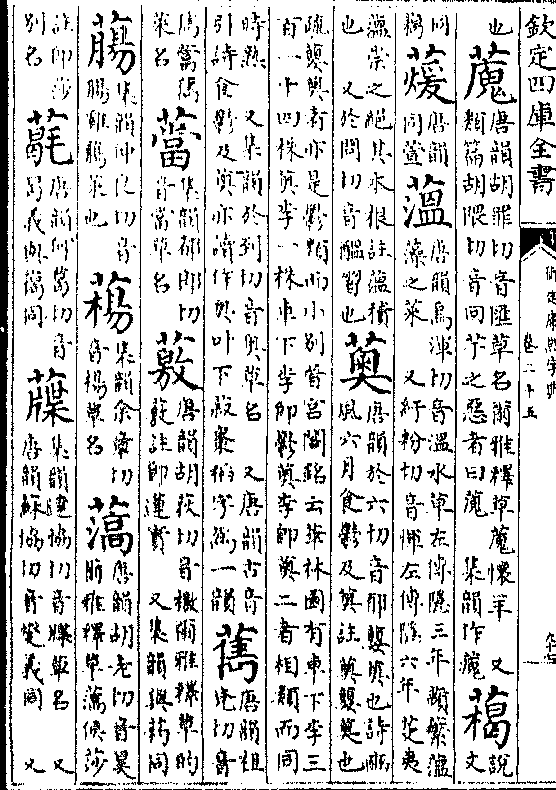 欽定四庫全書
御定康熙字典
卷二十五
也
唐韻胡罪切音匯草名爾雅釋草
懷羊 又
類篇胡隈切音回芋之惡者曰
集韻作
說
文
同
蕿
唐韻
同萱
薀
唐韻烏渾切音溫水草左傳隱三年蘋蘩薀
藻之菜 又紆粉切音惲左傳隱六年芟夷
薀崇之絕其本根註薀積
也 又於問切音醞習也
薁
唐韻於六切音郁蘡薁也詩豳
風六月食鬱及薁註薁蘡薁也
疏蘡薁者亦是鬱類而小別晉宮閣銘云華林園有車下李三
百一十四株薁李一株車下李即鬱薁李即薁二者相類而同
時熟 又集韻於到切音奧草名 又唐韻古音
引詩食鬱及薁亦讀作奧叶下菽棗稻字為一韻
唐韻徂
兖切音
菜名
集韻都郎切
音當草名
薂
唐韻胡狄切音檄爾雅釋草的
薂註即蓮實 又集韻與菂同
集韻仲良切音
腸雞腸菜也
集韻余章切
音楊草名
薃
唐韻胡老切音昊
爾雅釋草薃侯莎
註即莎
別名
唐韻何葛切音
曷義與藒同
集韻達協切音牒草名 又
唐韻蘇協切音燮義同 又